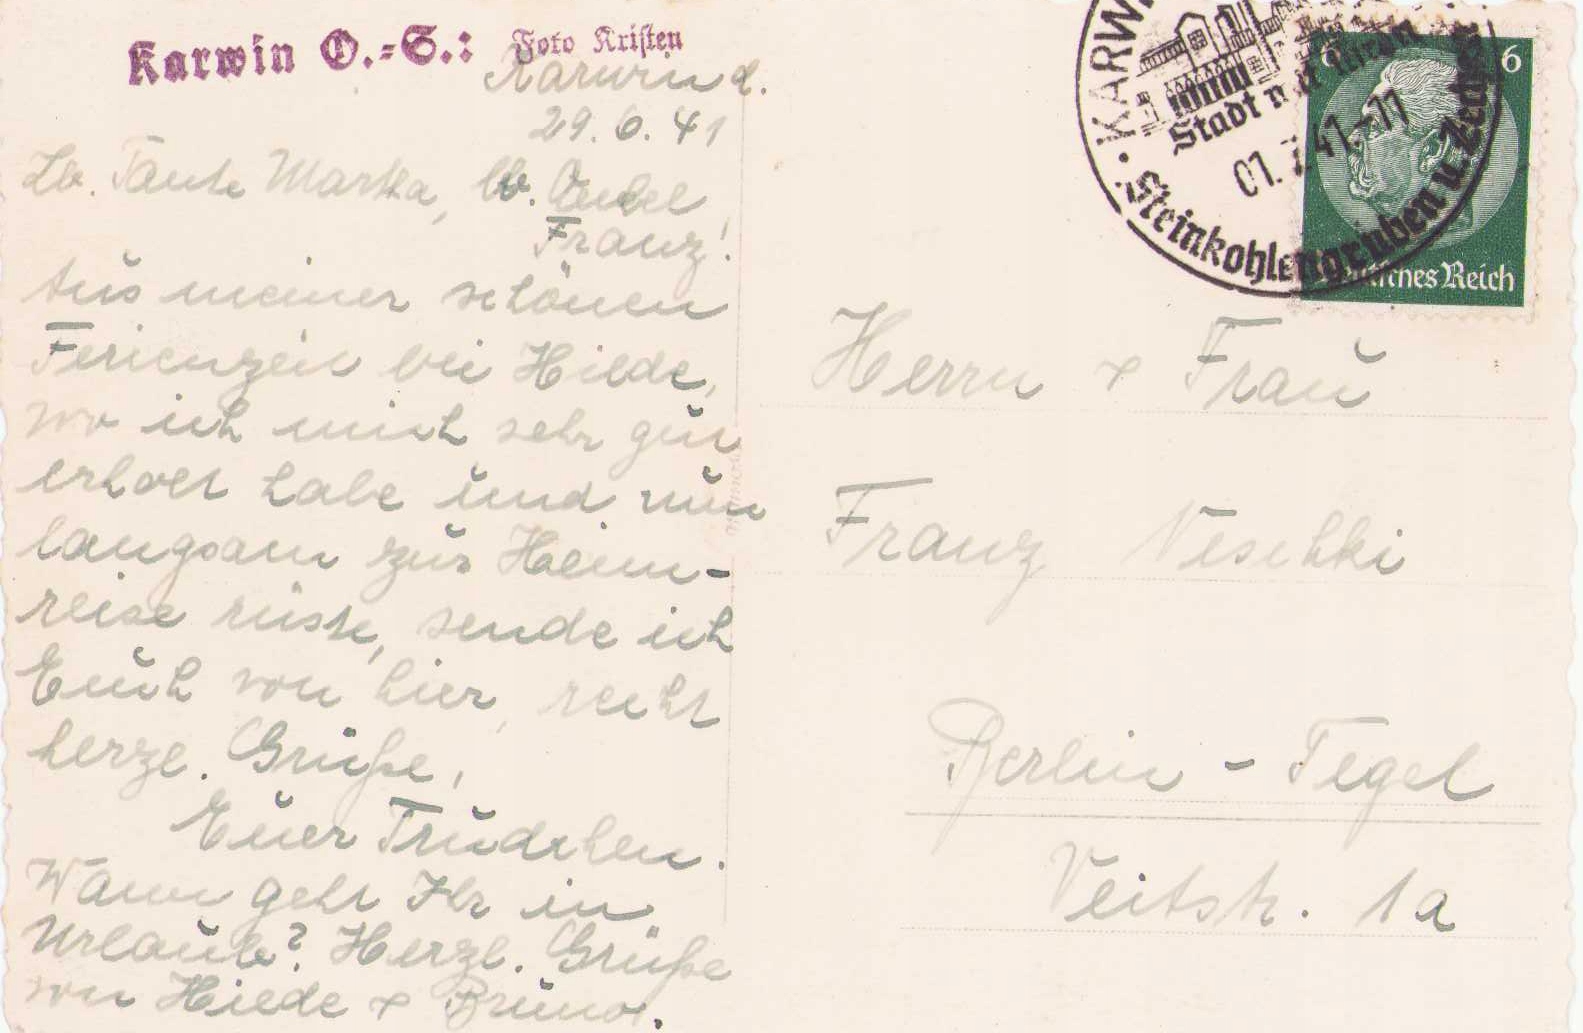 Karwin O.-S.: Foto Kristen
Karwin d.
29.6.41
Lb. Tante Martha, lb. Onkel
Franz!
Aus meiner schönen
Ferienzeit bei Hilde,
wo ich mich sehr gut
erholt habe und nun
langsam zur Heim-
reise rüste, sende ich
Euch von hier, recht
herzl. Grüße,
Euer Trudchen.
Wann geht Ihr in
Urlaub? Herzl. Grüße
von Hilde + Bruno.
KARWI
Stadt
Steinkohlengruben u.
01.7.41.-11
6
Deutsches Reich
Herrn + Frau
Franz Neschki
Berlin - Tegel
Veitstr. 1a